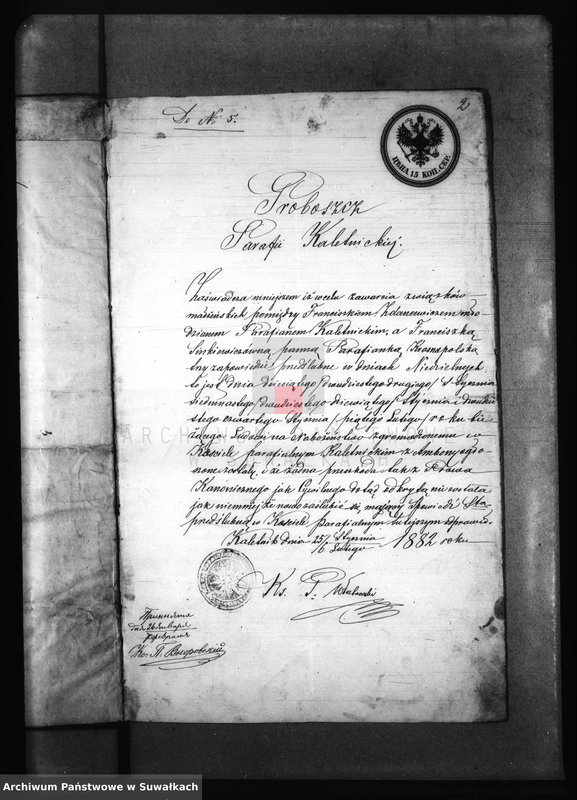 2
Do № 5.
ЦѢНА 15 КОП. СЕР.
Proboszcz
Parafii Kaletnickiej.
Zaświadcza niniejszem iż w celu zawarcia związków
małżeńskich pomiędzy Franciszkiem Zdancewiczem mło-
dzianem Parafianem Kaletnickim, a Franciszką
Sinkiewiczówną panną Parafianką Krasnopolską
trzy zapowiedzie przedślubne w dniach Niedzielnych
to jest dnia dziesiątego /dwudziestego drugiego/ Stycznia
siedmnastego /dwudziestego dziewiątego/ Stycznia i dwudzie-
stego czwartego Stycznia /piątego Lutego/ roku bie-
żącego Ludowi na Nabożeństwo zgromadzonemu w
Kościele parafialnym Kaletnickim z Ambony ogło-
szone zostały i że żadna przeszkoda tak z Prawa
Kanonicznego jak Cywilnego dotąd odkrytą nie została
jak niemniej że nowozaślubić się mający Spowiedź
przedślubną w Kościele parafialnym tutejszym
Kaletnik dnia 25/6 Stycznia/Lutego 1882 roku
Ks. P.
Принята
дня 26 Января
7 Февраля
Кс. П.
ARCH
Archiwum Państwowe w Suwałkach